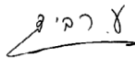 ע. רביד